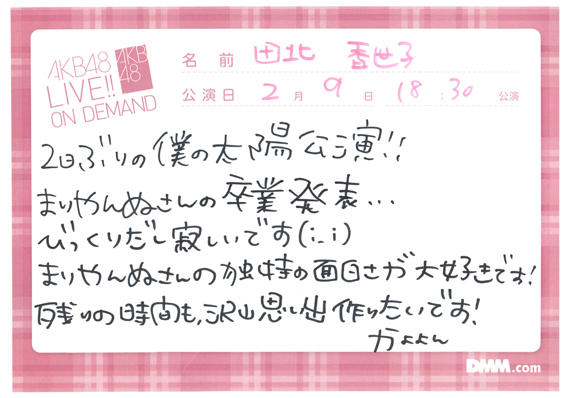 AKB48
LIVE!!
ON DEMAND
AKB
48
名前 田北 香世子
公演日 2月 9日 18:30 公演
2日ぶりの僕の太陽公演!!
まりやんぬさんの卒業発表...
びっくりだし寂しいです(;_;)
まりやんぬさんの独特の面白さが大好きです!
残りの時間も、沢山思い出作りたいです!
かよよん
DMM.com